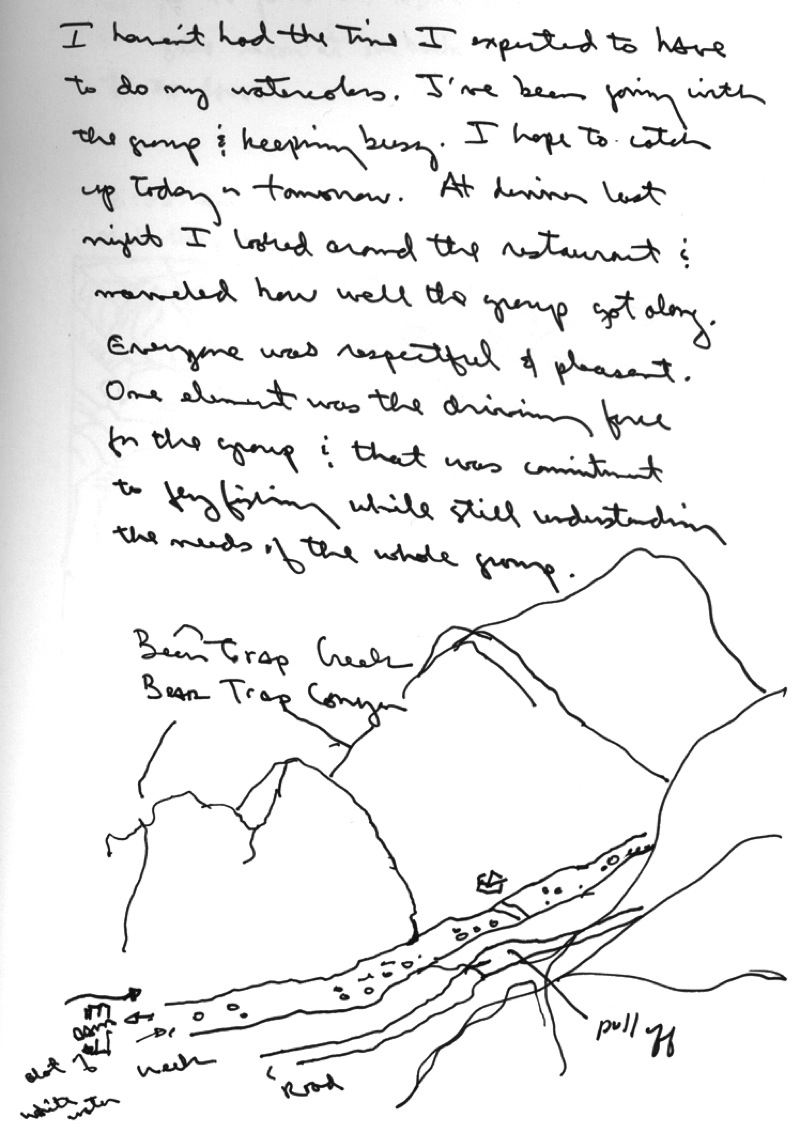 I haven't had the Time I expected to have
to do my watercolors. I've been going with
the group & keeping busy. I hope To catch
up Today or tomorrow. At dinner last
night I looked around the restaurant &
marveled how well the group got along.
Everyone was respectful & pleasant.
One element was the driving force
for the group & that was commitment
to fly fishing while still understanding
the needs of the whole group.
Bear Trap Creek
BEAR Trap Canyon
DAM
pull off
alot of
white water
Road